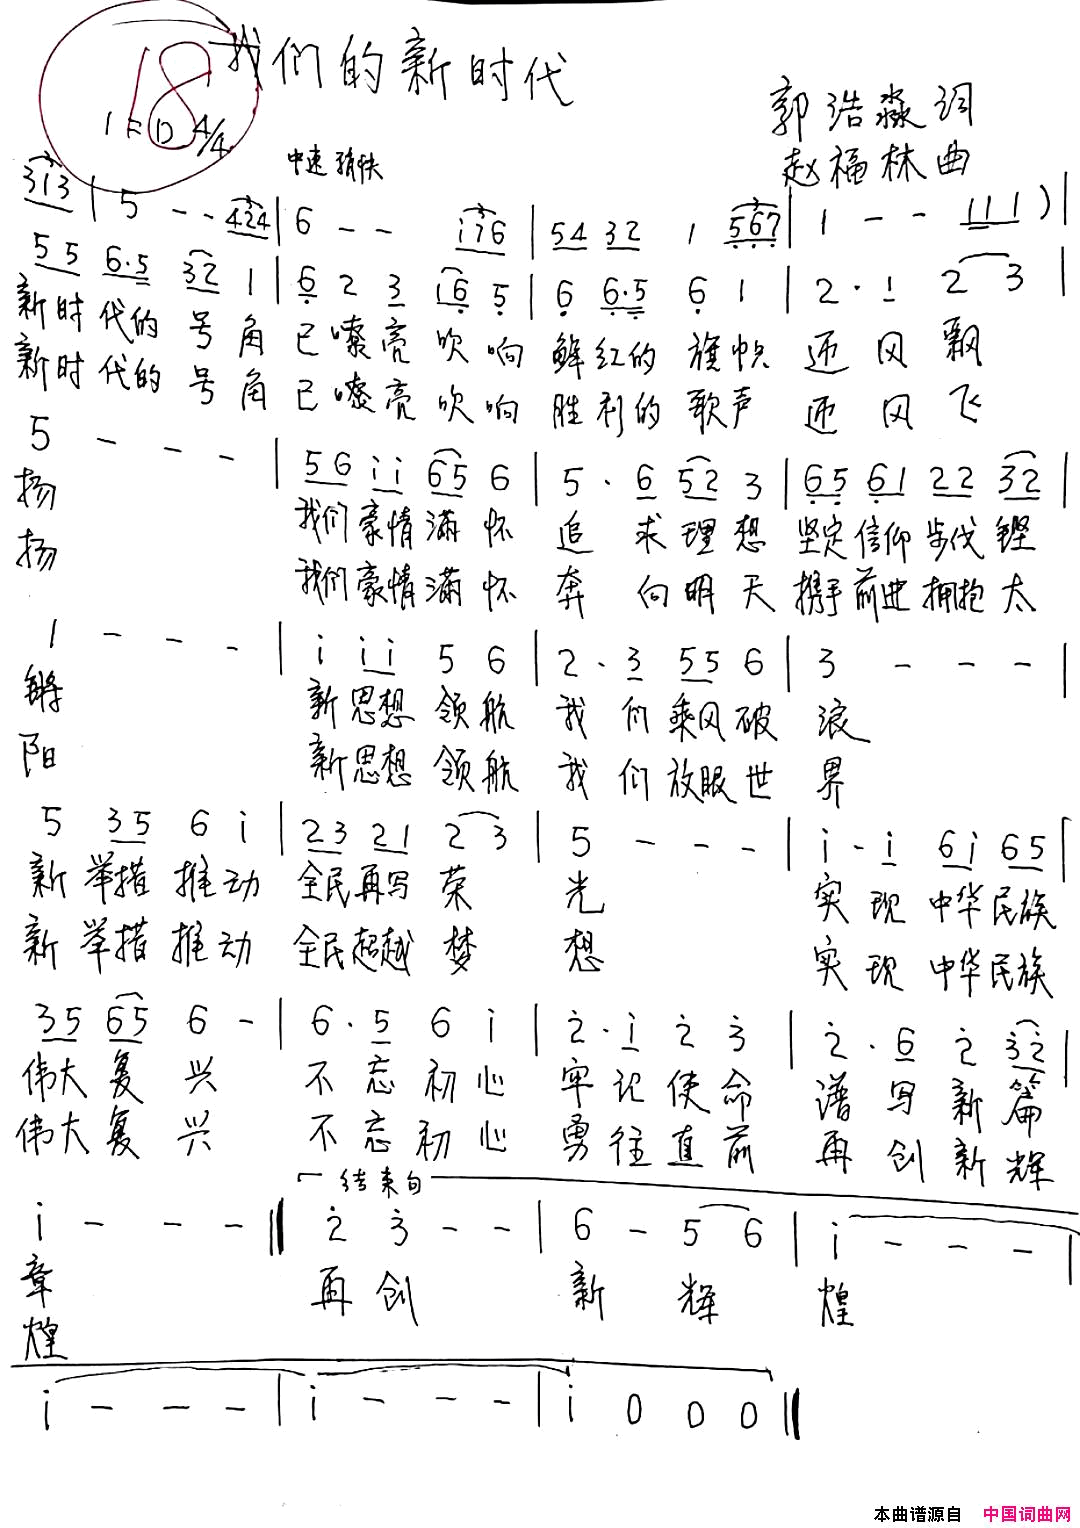 18 我们的新时代
1=D 4/4
中速稍快
郭浩淼词
赵福林曲
313 | 5 - - 424 | 6 - - i76 | 54 32 1 567 | 1 - - 111 ) |
55 6·5 32 1 | 6 2 3 i6 5 | 6 6·5 6 1 | 2 · 1 2 3 |
新时代的号角 已嘹亮吹响 鲜红的旗帜 迎风飘
新时代的号角 已嘹亮吹响 胜利的歌声 迎风飞
5 - - - | 56 ii 65 6 | 5 · 6 52 3 | 65 61 22 32 |
扬 我们豪情满怀 追求理想 坚定信仰步伐铿
扬 我们豪情满怀 奔向明天 携手前进拥抱太
1 - - - | i ii 5 6 | 2 · 3 55 6 | 3 - - - |
锵 新思想领航 我们乘风破浪
阳 新思想领航 我们放眼世界
5 35 6 i | 23 21 2 3 | 5 - - - | i · i 6i 65 |
新举措推动 全民再写荣光 实现中华民族
新举措推动 全民超越梦想 实现中华民族
35 65 6 - | 6 · 5 6 i | 2 · i 2 3 | 2 · 6 2 32 |
伟大复兴 不忘初心 牢记使命 谱写新篇
伟大复兴 不忘初心 勇往直前 再创新辉
结束句
i - - - || 2 3 - - | 6 - 5 6 | i - - - |
章 再创 新辉煌
煌
i - - - | i - - - | i 0 0 0 ||
本曲谱源自 中国词曲网